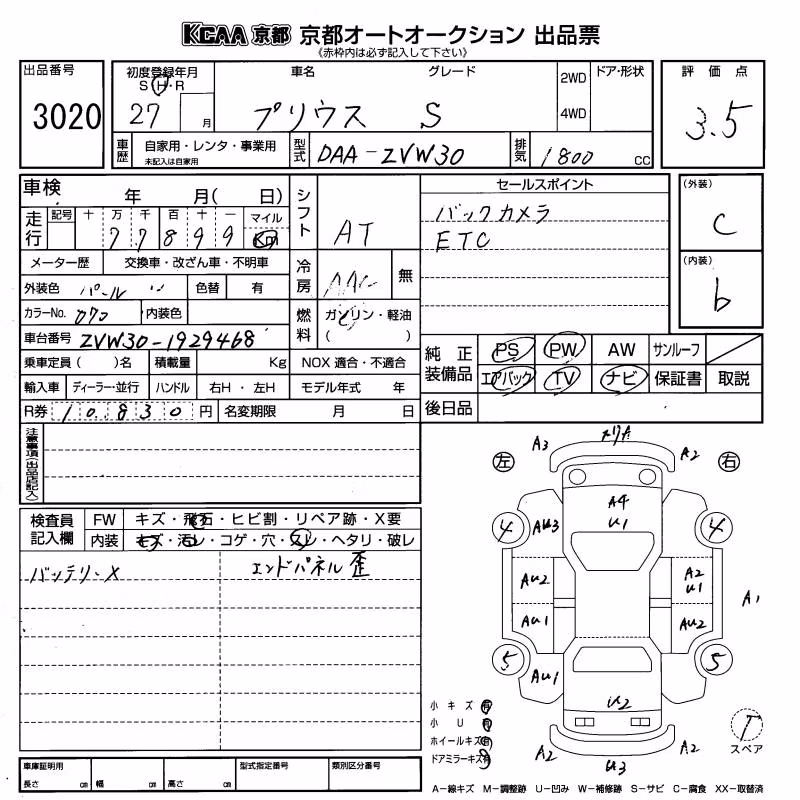 KCAA 京都 京都オートオークション 出品票
《赤枠内は必ず記入して下さい》
出品番号 3020
初度登録年月 S・H・R 27 月
車名 グレード プリウス S
2WD 4WD ドア・形状
評価点 3.5
車歴 自家用・レンタ・事業用 未記入は自家用
型式 DAA-ZVW30
排気 1800 CC
車検 年 月( 日)
走行 記号 十 万 千 百 十 一 マイル Km
77899
メーター歴 交換車・改ざん車・不明車
外装色 パール 色替 有
カラーNo. 070 内装色
車台番号 ZVW30-1929468
乗車定員 ( )名 積載量 Kg
輸入車 ディーラー・並行 ハンドル 右H ・ 左H
R券 10830 円 名変期限 月 日
シフト AT
冷房 AAC 無
燃料 ガソリン・軽油 ( )
NOX 適合・不適合
モデル年式 年
セールスポイント
バックカメラ
ETC
(外装) C
(内装) b
純正装備品 PS PW AW サンルーフ
エアバック TV ナビ 保証書 取説
後日品
注意事項(出品店記入)
検査員記入欄 FW キズ・飛石・ヒビ割・リペア跡・X要
内装 キズ・汚レ・コゲ・穴・スレ・ヘタリ・破レ
バッテリーX エンドパネル歪
左 右
A3 A2
A4
U1
4 AU3 4
AU2 A2 U1
A1
AU1 AU2
5 AU1 5
U2
A2 U3 A2
小キズ 有
小U 有
ホイールキズ 有
ドアミラーキズ 有
T スペア
車庫証明用 長さ cm 幅 cm 高さ cm
型式指定番号 類別区分番号
A−線キズ M−調整跡 U−凹み W−補修跡 S−サビ C−腐食 XX−取替済